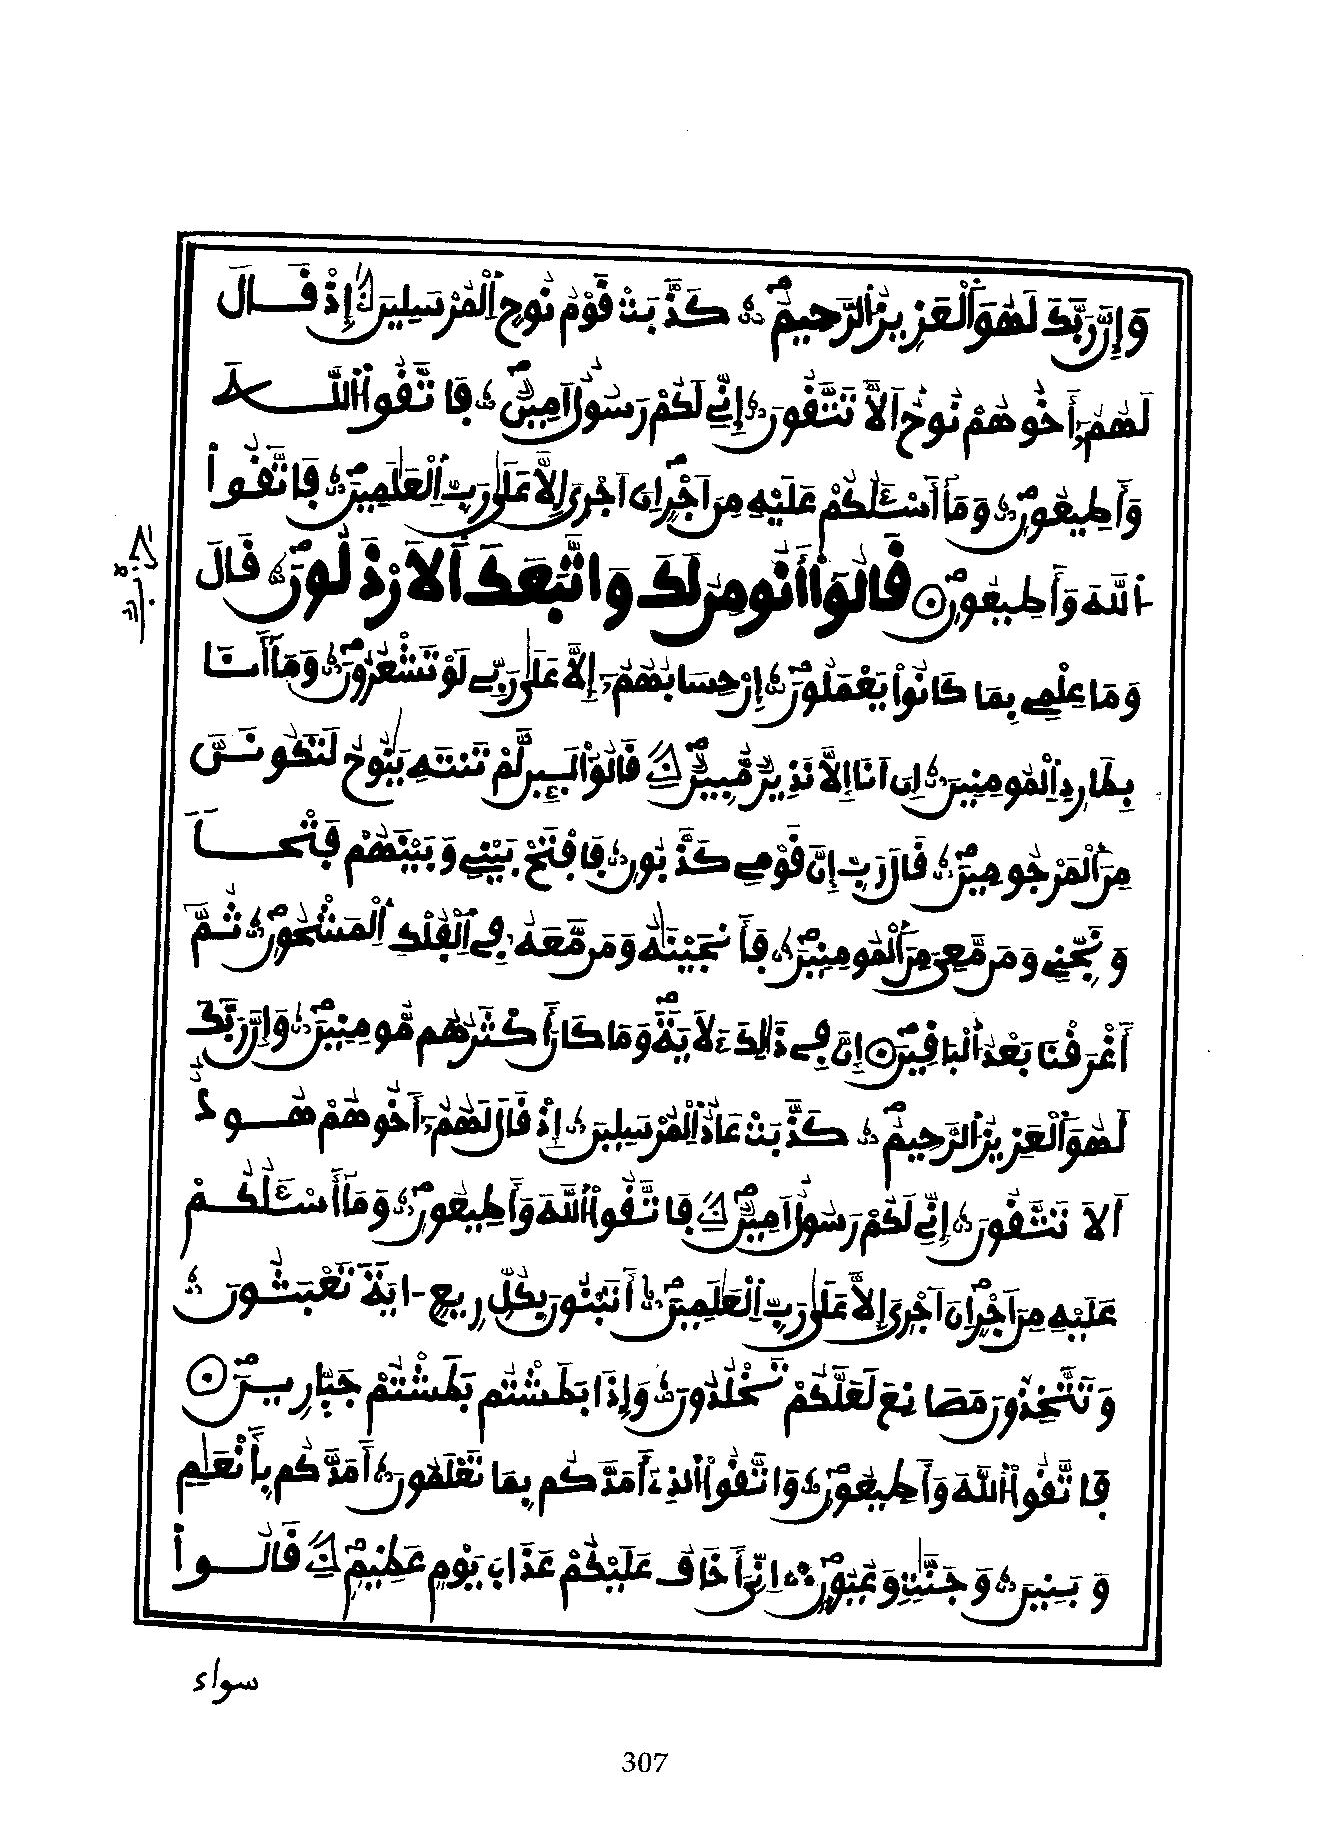 وَإِنَّ رَبَّكَ لَهُوَ ٱلْعَزِيزُ ٱلرَّحِيمُ كَذَّبَتْ قَوْمُ نُوحٍ ٱلْمُرْسَلِينَ إِذْ قَــالَ
لَهُمُۥٓ أَخُوهُمْ نُوحٌ اَلَا تَتَّقُونَ إِنِّے لَكُمْ رَسُولٌ اَمِينٌ فَاتَّقُواْ اُللَّــهَ
وَأَطِيعُونِ وَمَآ أَسْـَٔلُكُمْ عَلَيْهِ مِنَ اَجْرٍ اِنَ اَجْرِىَ إِلَّا عَلَىٰ رَبِّ اِلْعَٰلَمِينَ فَاتَّقُواْ
اُللَّهَ وَأَطِيعُونِ قَالُوٓاْ أَنُومِنُ لَكَ وَاتَّبَعَكَ اَلَارْذَلُونَ قَالَ
وَمَا عِلْمِے بِمَا كَانُواْ يَعْمَلُونَ إِنْ حِسَابُهُمُۥٓ إِلَّا عَلَىٰ رَبِّے لَوْ تَشْعُرُونَ وَمَآ أَنَا
بِطَارِدِ اِلْمُومِنِينَ إِنَ اَنَا إِلَّا نَذِيرٌ مُّبِينٌ قَالُواْ لَئِن لَّمْ تَنتَهِ يَٰنُوحُ لَتَكُونَنَّ
مِنَ اَلْمَرْجُومِينَ قَالَ رَبِّ إِنَّ قَوْمِے كَذَّبُونِ فَافْتَحْ بَيْنِے وَبَيْنَهُمْ فَتْحــاً
وَنَجِّنِے وَمَن مَّعِے مِنَ اَلْمُومِنِينَ فَأَنجَيْنَٰهُ وَمَن مَّعَهُۥ فِے اِلْفُلْكِ اِلْمَشْحُونِ ثُــمَّ
أَغْرَقْنَا بَعْدُ اُلْبَاقِينَ إِنَّ فِے ذَٰلِكَ ءَلَايَةً وَمَا كَانَ أَكْثَرُهُم مُّومِنِينَ وَإِنَّ رَبَّكَ
لَهُوَ اَلْعَزِيزُ اُلرَّحِيمُ كَذَّبَتْ عَادٌ اِلْمُرْسَلِينَ إِذْ قَالَ لَهُمُۥٓ أَخُوهُمْ هُــودٌ
اَلَا تَتَّقُونَ إِنِّے لَكُمْ رَسُولٌ اَمِينٌ فَاتَّقُواْ اُللَّهَ وَأَطِيعُونِ وَمَآ أَسْـَٔلُكُــمْ
عَلَيْهِ مِنَ اَجْرٍ اِنَ اَجْرِىَ إِلَّا عَلَىٰ رَبِّ اِلْعَٰلَمِينَ أَتَبْنُونَ بِكُلِّ رِيعٍ ـ ايَةً تَعْبَثُــونَ
وَتَتَّخِذُونَ مَصَانِعَ لَعَلَّكُمْ تَخْلُدُونَ وَإِذَا بَطَشْتُم بَطَشْتُمْ جَبّٰارِيــنَ
فَاتَّقُواْ اُللَّهَ وَأَطِيعُونِ وَاتَّقُواْ اُلذِےٓ أَمَدَّكُم بِمَا تَعْلَمُونَ أَمَدَّكُم بِأَنْعَٰمٍ
وَبَنِينَ وَجَنَّٰتٍ وَعُيُونٍ اِنِّىَ أَخَافُ عَلَيْكُمْ عَذَابَ يَوْمٍ عَظِيمٍ قَالُــواْ
سواء
307